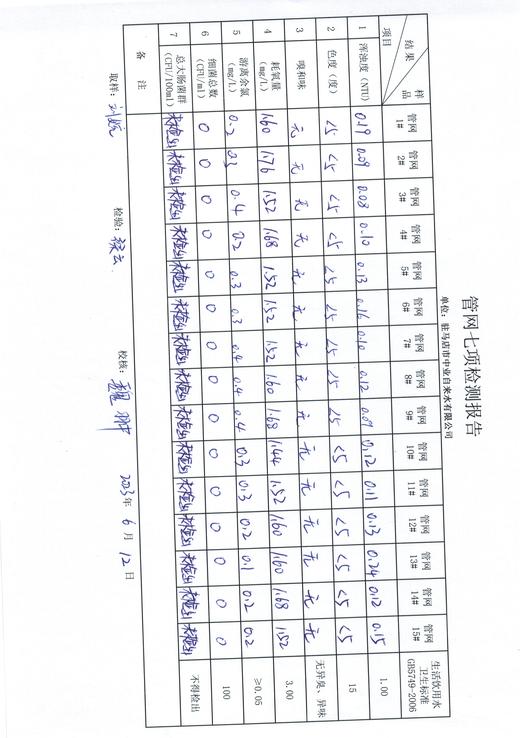 管网七项检测报告
单位: 驻马店市中业自来水有限公司
项目 结果 样品 管网1# 管网2# 管网3# 管网4# 管网5# 管网6# 管网7# 管网8# 管网9# 管网10# 管网11# 管网12# 管网13# 管网14# 管网15# 生活饮用水卫生标准GB5749-2006
1 浑浊度(NTU) 0.19 0.09 0.08 0.10 0.13 0.16 0.10 0.12 0.09 0.12 0.11 0.13 0.24 0.12 0.15 1.00
2 色度(度) <5 <5 <5 <5 <5 <5 <5 <5 <5 <5 <5 <5 <5 <5 <5 15
3 嗅和味 无 无 无 无 无 无 无 无 无 无 无 无 无 无 无 无异臭、异味
4 耗氧量(mg/L) 1.60 1.76 1.52 1.68 1.52 1.52 1.52 1.60 1.68 1.44 1.52 1.60 1.60 1.68 1.52 3.00
5 游离余氯(mg/L) 0.2 0.3 0.4 0.2 0.3 0.3 0.4 0.4 0.4 0.3 0.3 0.2 0.1 0.2 0.2 ≥0.05
6 细菌总数(CFU/ml) 0 0 0 0 0 0 0 0 0 0 0 0 0 0 0 100
7 总大肠菌群(CFU/100ml) 未检出 未检出 未检出 未检出 未检出 未检出 未检出 未检出 未检出 未检出 未检出 未检出 未检出 未检出 未检出 不得检出
备 注
取样: 检验: 校核: 2023年 6 月 12 日